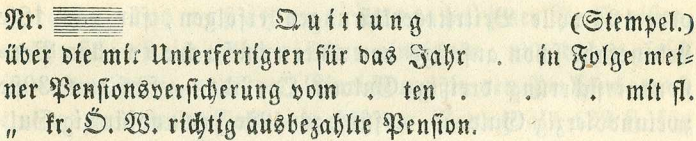 Nr. Quittung (Stempel.)
über die mir Unterfertigten für das Jahr . in Folge mei-
ner Pensionsversicherung vom . ten . . . . mit fl.
„ kr. Ö. W. richtig ausbezahlte Pension.